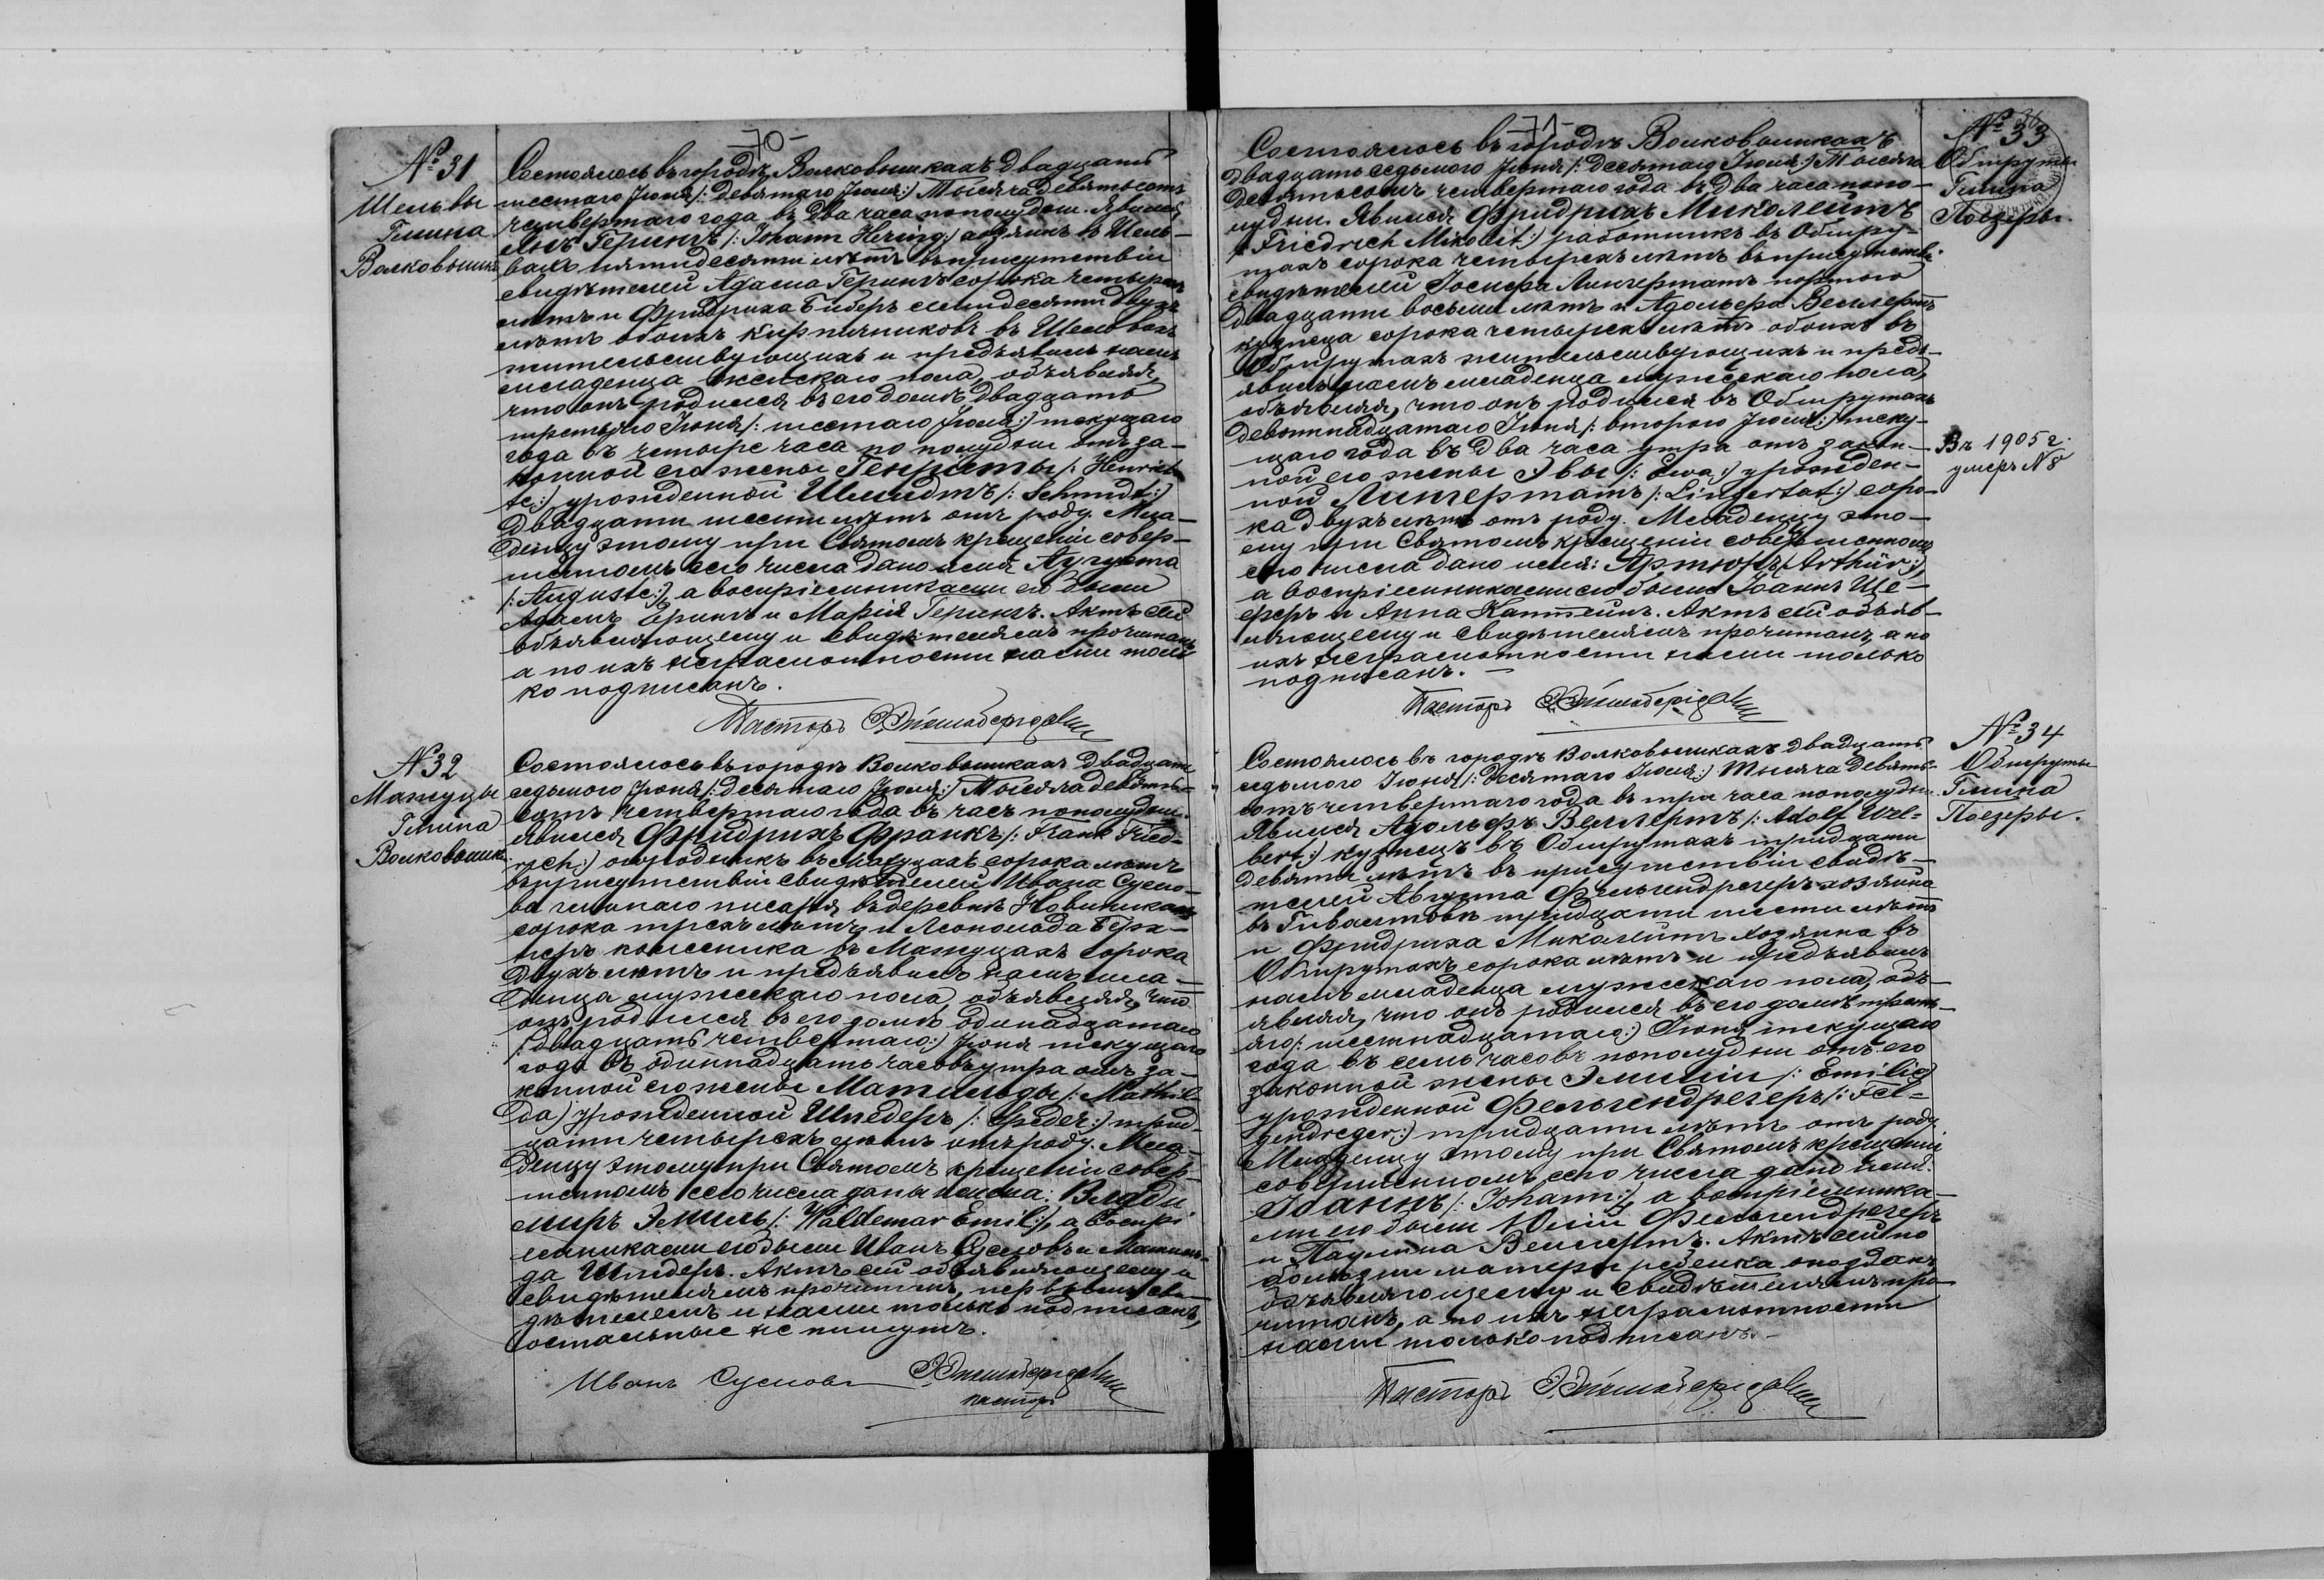 -70-
№ 31
Шельвы
Гмина
Волковышки
Состоялось въ городѣ Волковышкахъ двадцать
шестаго Іюня /: девятаго Іюля:/ тысяча девятьсотъ
четвертаго года въ два часа пополудни. Явился
Янъ Герингъ /: Johann Hering:/ хозяинъ въ Шель-
вахъ пятидесяти лѣтъ въ присутствіи
свидѣтелей Адама Герингъ сорока четырехъ
лѣтъ и Фридриха Биберъ семидесяти двухъ
лѣтъ обоихъ кирпичниковъ въ Шельвахъ
жительствующихъ и предъявилъ намъ
младенца женскаго пола, объявляя,
что онъ родился въ его домѣ двадцать
третьяго Іюня /: шестаго Іюля:/ текущаго
года въ четыре часа по полудни отъ за-
конной его жены Генріеты /: Henriet-
te:/ урожденной Шмидтъ /: Schmidt:/
двадцати шести лѣтъ отъ роду. Мла-
денцу этому при Святомъ крещеніи совер-
шенномъ сего числа дано имя Августа
/: Auguste:/, а воспріемниками его были
Адамъ Герингъ и Марія Герингъ. Актъ сей
объявляющему и свидѣтелямъ прочитанъ,
а по ихъ неграмотности нами толь-
ко подписанъ.
Пасторъ
№ 32
Мажуцы
Гмина
Волковышки
Состоялось въ городѣ Волковышкахъ двадцать
седьмого Іюня /: десятаго Іюля:/ тысяча девять-
сотъ четвертаго года въ часъ пополудни.
Явился Фридрихъ Франкъ /: Frank Fried-
rich:/ огородникъ въ Мажуцахъ сорока лѣтъ
въ присутствіи свидѣтелей Ивана Сусло-
ва гминнаго писаря въ деревнѣ Новиникахъ
сорока трехъ лѣтъ и Леопольда
колесника въ Мажуцахъ сорока
двухъ лѣтъ и предъявилъ намъ мла-
денца мужескаго пола, объявляя, что
онъ родился въ его домѣ одинадцатаго
/: двадцать четвертаго:/ Іюня текущаго
года въ одиннадцать часовъ утра отъ за-
конной его жены Матильды /: Mathil-
da:/ урожденной Шредеръ /: Schreder:/ трид-
цати четырехъ лѣтъ отъ роду. Мла-
денцу этому при Святомъ крещеніи совер-
шенномъ сего числа даны имена: Влади
миръ Эмиль /: Waldemar Emil:/, а воспрі
емниками его были Иванъ Сусловъ и Матиль-
да Шредеръ. Актъ сей объявляющему и
свидѣтелямъ прочитанъ, первымъ сви-
дѣтелемъ и нами только подписанъ,
остальные не пишутъ.
Иванъ Сусловъ
пасторъ
-71-
№ 33
Обшруты
Гмина
Поезеры.
Состоялось въ городѣ Волковышкахъ
двадцать седьмого Іюня /: десятаго Іюля:/ тысяча
девятьсотъ четвертаго года въ два часа попо-
лудни. Явился Фридрихъ Миколейтъ
/: Friedrich Mikoleit:/ работникъ въ Обшру-
тахъ сорока четырехъ лѣтъ въ присутствіи
свидѣтелей Іосифа Лингертатъ портного
двадцати восьми лѣтъ и Адольфа Веллертъ
кузнеца сорока четырехъ лѣтъ обоихъ въ
Обшрутахъ жительствующихъ и предъ-
явилъ намъ младенца мужескаго пола,
объявляя, что онъ родился въ Обшрутахъ
девятнадцатаго Іюня /: второго Іюля:/ теку-
щаго года въ два часа утра отъ закон-
ной его жены Эвы /: Ewa:/ урожден-
ной Лингертатъ /: Lingertat:/ соро-
ка двухъ лѣтъ отъ роду. Младенцу это-
му при Святомъ крещеніи совершенномъ
сего числа дано имя: Артюръ /: Arthür:/,
а воспріемниками его были Іоаннъ Ше-
феръ и Анна Каптейнъ. Актъ сей объяв-
ляющему и свидѣтелямъ прочитанъ, а по
ихъ неграмотности нами только
подписанъ.
Въ 1905 г.
умеръ № 8
Пасторъ
№ 34
Обшруты
Гмина
Поезеры.
Состоялось въ городѣ Волковышкахъ двадцать
седьмого Іюня /: десятаго Іюля:/ тысяча девять-
сотъ четвертаго года въ три часа пополудни.
Явился Адольфъ Веллертъ /: Adolf Wel-
lert:/ кузнецъ въ Обшрутахъ тридцати
девяти лѣтъ въ присутствіи свидѣ-
телей Августа Фельгендрегеръ хозяина
въ тридцати шести лѣтъ
и Фридриха Миколейтъ хозяина въ
Обшрутахъ сорока лѣтъ и предъявилъ
намъ младенца мужескаго пола, объ-
являя, что онъ родился въ его домѣ треть-
яго /: шестнадцатаго:/ Іюня текущаго
года въ семь часовъ пополудни отъ его
законной жены Эмиліи /: Emilie
урожденной Фельгендрегеръ /: Fel-
gendreger:/ тридцати лѣтъ отъ роду.
Младенцу этому при Святомъ крещеніи
совершенномъ сего числа дано имя:
Іоаннъ /: Johann:/, а воспріемника-
ми его были Юлій Фельгендрегеръ
и Паулина Веллертъ. Актъ сей по
болѣзни матери ребенка опозданъ,
объявляющему и свидѣтелямъ про-
читанъ, а по ихъ неграмотности
нами только подписанъ.-
Пасторъ